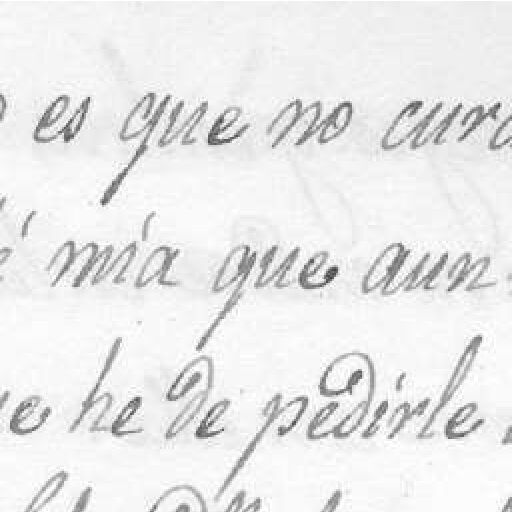 es que no cura
mía que aun
he de pedirle